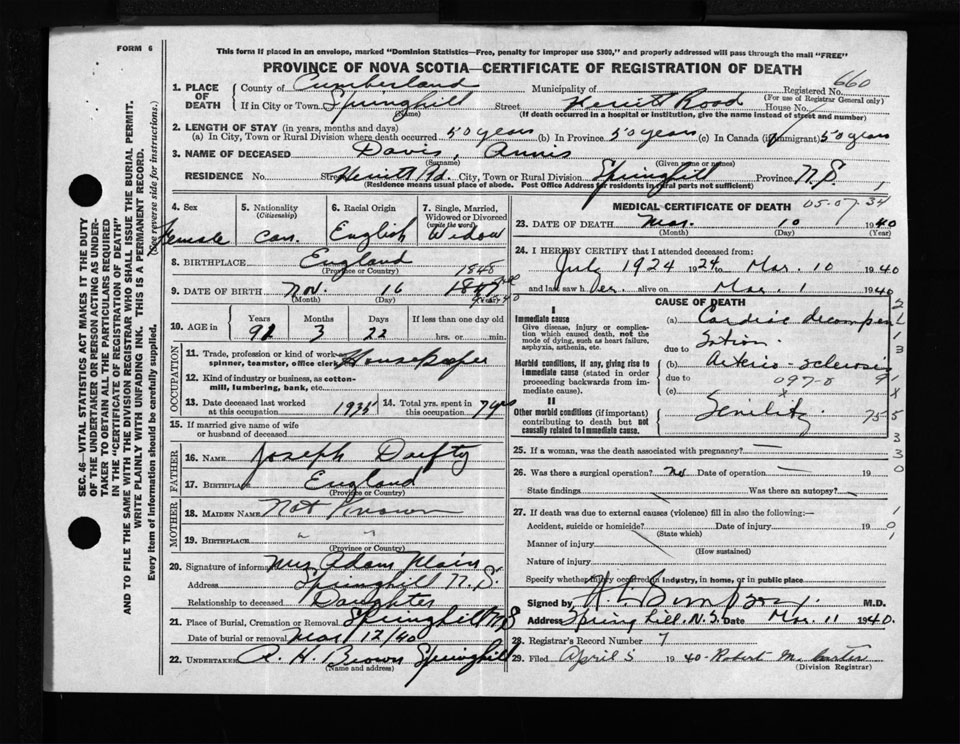 FORM 6
This form if placed in an envelope, marked "Dominion Statistics—Free, penalty for improper use $300," and properly addressed will pass through the mail "FREE"
PROVINCE OF NOVA SCOTIA—CERTIFICATE OF REGISTRATION OF DEATH
660
1. PLACE OF DEATH
County of Cumberland Municipality of Registered No.
(For use of Registrar General only)
If in City or Town Springhill Street Herritt Road House No.
(Name) (If death occurred in a hospital or institution, give the name instead of street and number)
2. LENGTH OF STAY (in years, months and days)
(a) In City, Town or Rural Division where death occurred 50 years (b) In Province 50 years (c) In Canada (if immigrant) 50 years
3. NAME OF DECEASED Davis, Annis
(Surname) (Given name or names)
RESIDENCE No. Street Herritt Rd. City, Town or Rural Division Springhill Province N.S.
(Residence means usual place of abode. Post Office Address for residents in rural parts not sufficient)
4. Sex
Female
5. Nationality
(Citizenship)
Can.
6. Racial Origin
English
7. Single, Married, Widowed or Divorced
(write the word)
Widow
8. BIRTHPLACE England
(Province or Country)
1848
9. DATE OF BIRTH Nov. 16
(Month) (Day) (Year)
10. AGE in
Years Months Days If less than one day old
3 22 hrs. or min.
OCCUPATION
11. Trade, profession or kind of work—
spinner, teamster, office clerk Housekeeper
12. Kind of industry or business, as cotton-
mill, lumbering, bank, etc.
13. Date deceased last worked at this occupation 1935
14. Total yrs. spent in this occupation
15. If married give name of wife
or husband of deceased
FATHER
16. Name Joseph Daefty
17. Birthplace England
(Province or Country)
MOTHER
18. Maiden Name Not Known
19. Birthplace " "
(Province or Country)
20. Signature of informant Mrs Adam Main
Address Springhill N.S.
Relationship to deceased Daughter
21. Place of Burial, Cremation or Removal Springhill N.S
Date of burial or removal Mar 12/40
22. UNDERTAKER R. H. Brown Springhill
(Name and address)
MEDICAL CERTIFICATE OF DEATH 05-07-34
23. DATE OF DEATH Mar. 10 1940
(Month) (Day) (Year)
24. I HEREBY CERTIFY that I attended deceased from:
July 1924 1924 to Mar. 10 1940
and last saw her alive on Mar. 1 1940
CAUSE OF DEATH
I
Immediate cause
Give disease, injury or complica-
tion which caused death, not the
mode of dying, such as heart failure,
asphyxia, asthenia, etc.
(a) Cardiac decompen
sation
due to
Morbid conditions, if any, giving rise to
immediate cause (stated in order
proceeding backwards from im-
mediate cause).
(b) Arterio-sclerosis
due to 097-0
(c)
II
Other morbid conditions (if important)
contributing to death but not
causally related to immediate cause.
Senility. 75
25. If a woman, was the death associated with pregnancy? —
26. Was there a surgical operation? No Date of operation — 19
State findings Was there an autopsy?
27. If death was due to external causes (violence) fill in also the following:—
Accident, suicide or homicide? Date of injury 19
(State which)
Manner of injury
(How sustained)
Nature of injury
Specify whether injury occurred in industry, in home, or in public place
Signed by M.D.
Address Springhill. N.S. Date Mar. 11 1940.
28. Registrar's Record Number 7
29. Filed April 5 1940 Robert M.
(Division Registrar)
SEC. 46—VITAL STATISTICS ACT MAKES IT THE DUTY
OF THE UNDERTAKER OR PERSON ACTING AS UNDER-
TAKER TO OBTAIN ALL THE PARTICULARS REQUIRED
IN THE "CERTIFICATE OF REGISTRATION OF DEATH"
AND TO FILE THE SAME WITH THE DIVISION REGISTRAR WHO SHALL ISSUE THE BURIAL PERMIT.
WRITE PLAINLY WITH UNFADING INK. THIS IS A PERMANENT RECORD.
Every item of information should be carefully supplied. (See reverse side for instructions.)